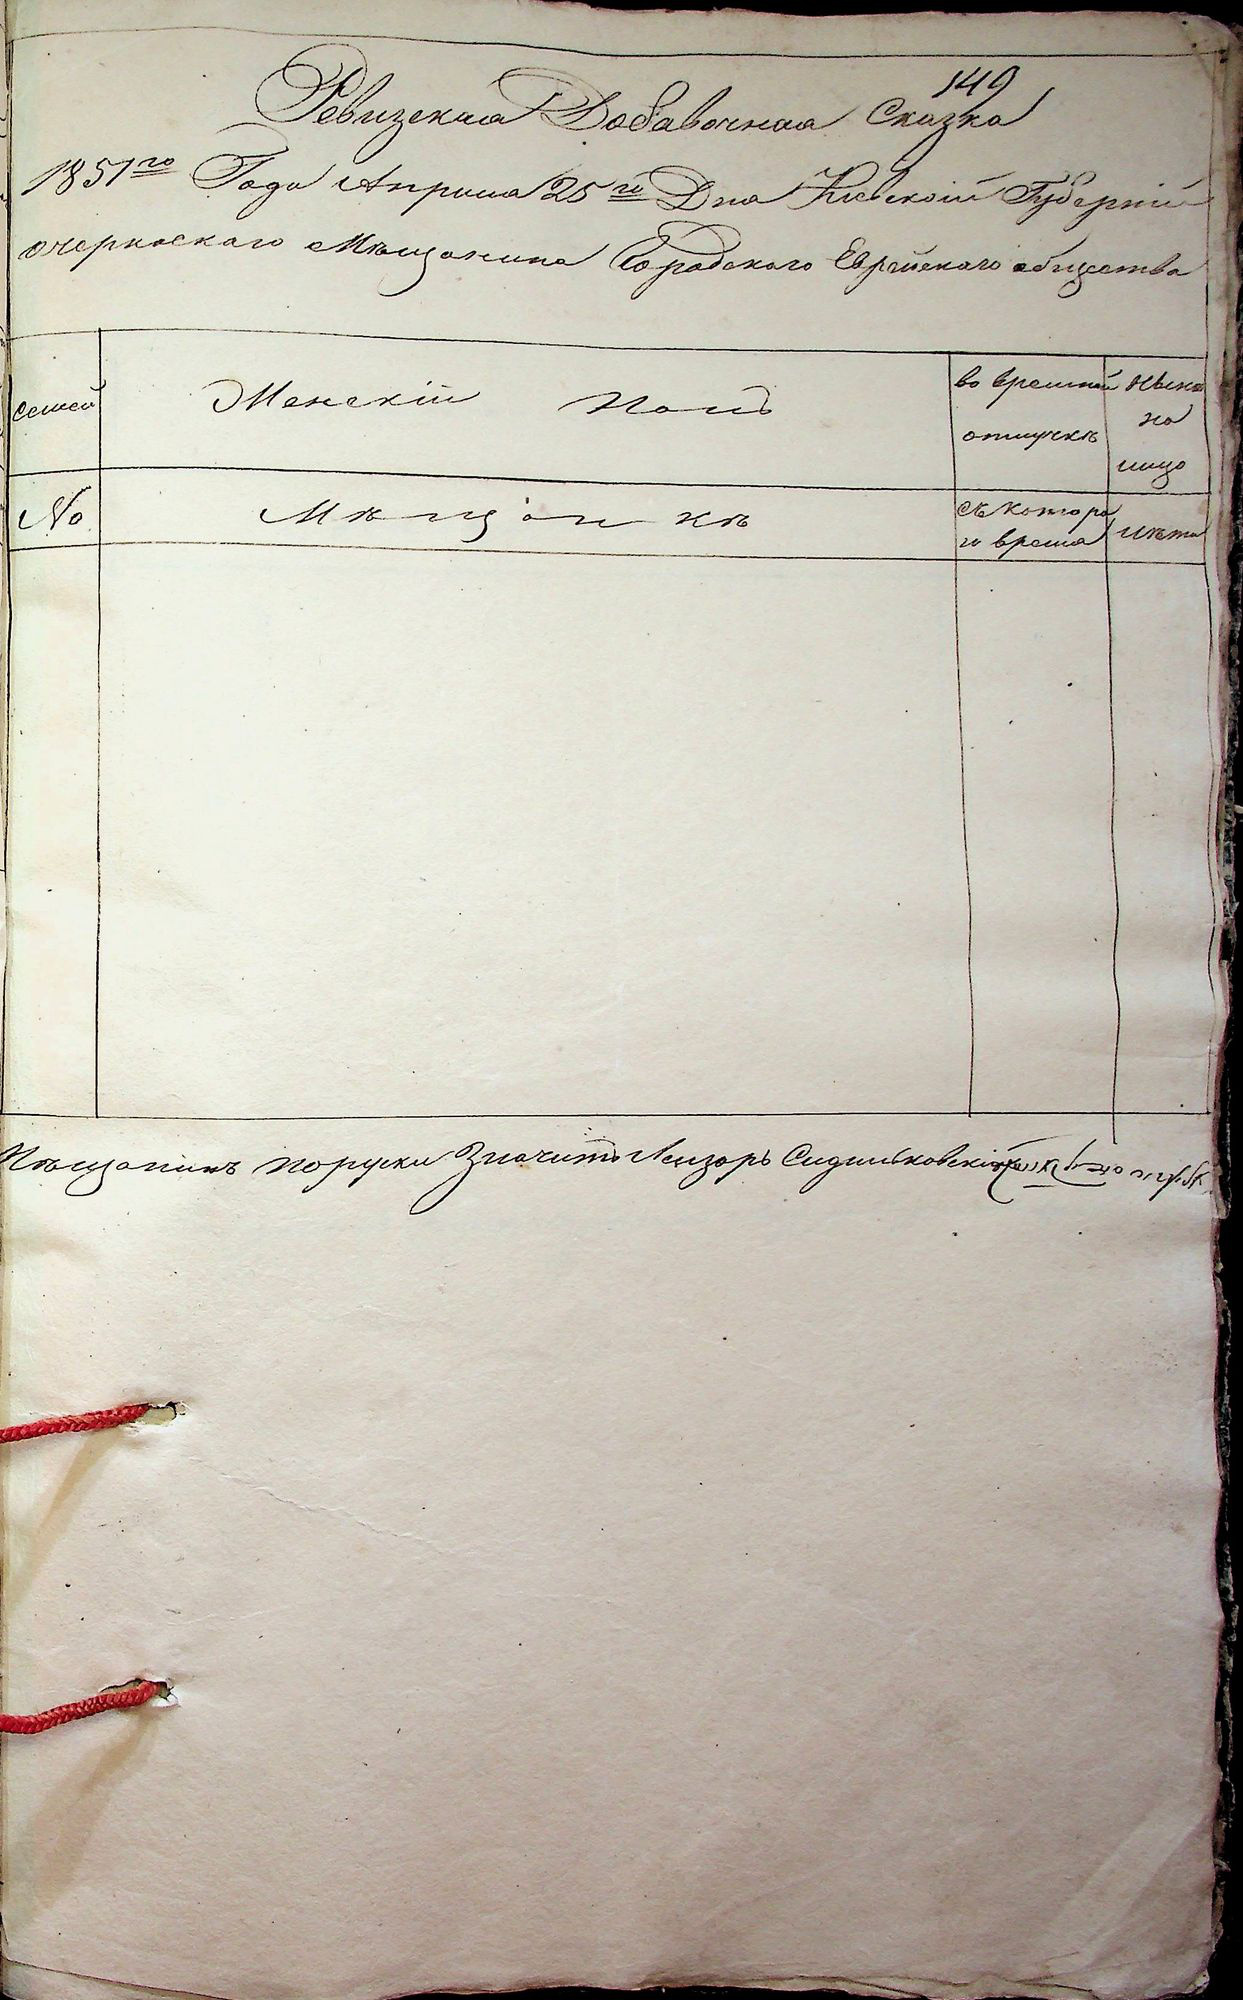 149
Ревизская Добавочная Сказка
1851го Года Апреля 25го Дня Киевской Губерній
очеркаскаго Мѣщанина Городскаго Еврейскаго общества
семей
Женскій Полъ
во временной отлучкѣ
ныне на лицо
No
Мѣщанкѣ
съ котора го время
лѣта
Мѣщанинъ поруски Значитъ Лейзоръ